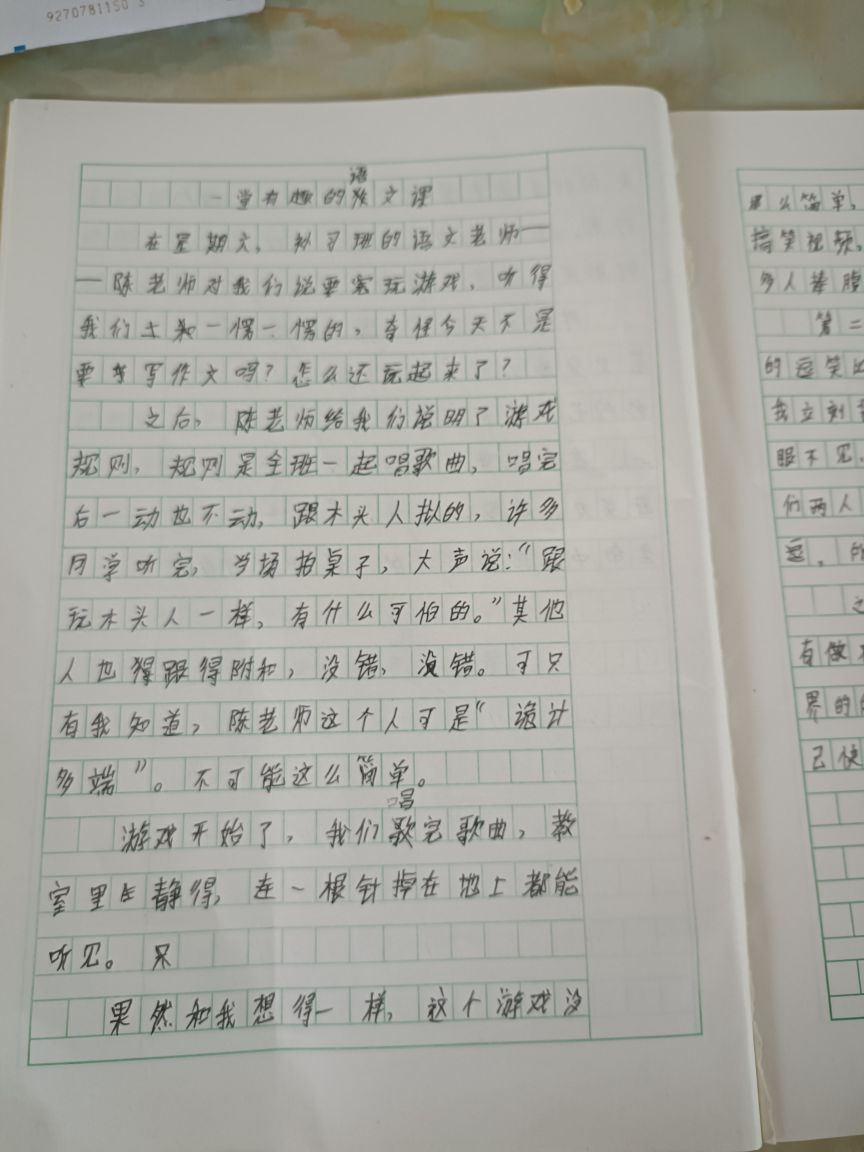 9270781150 3
语
一堂有趣的文课
在星期六，班的语文老师—
—陈老师对我们说要玩游戏，听得
我们一愣一愣的，奇怪今天不是
要写作文吗？怎么还玩起来了？
之后，陈老师给我们说明了游戏
规则，规则是全班一起唱歌曲，唱完
后一动也不动，跟木头人拟的，许多
同学听完，当场拍桌子，大声说：“跟
玩木头人一样，有什么可怕的。”其他
人也得跟得附和，没错，没错。可只
有我知道，陈老师这个人可是“诡计
多端”。不可能这么简单。
唱
游戏开始了，我们歌完歌曲，教
室里静得，连一根针掉在地上都能
听见。只
果然和我想得一样，这个游戏没
那么简单，
搞笑视频，
多人捧腹
第二
的逗笑
我立刻
眼不见，
们两人
逗，的
之
有做
界的
己使